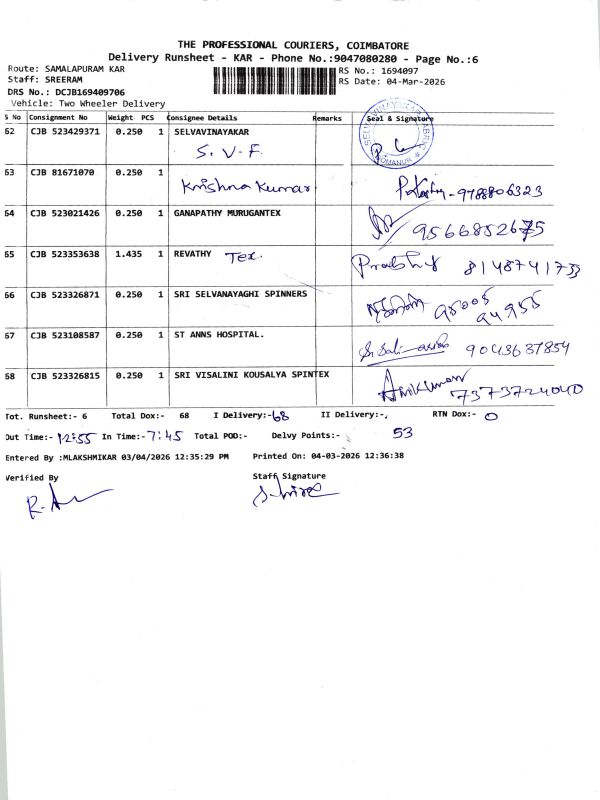 THE PROFESSIONAL COURIERS, COIMBATORE
Delivery Runsheet - KAR - Phone No.:9047080280 - Page No.:6
Route: SAMALAPURAM KAR
RS No.: 1694097
Staff: SREERAM
RS Date: 04-Mar-2026
DRS No.: DCJB169409706
Vehicle: Two Wheeler Delivery
S No Consignment No Weight PCS Consignee Details Remarks Seal & Signature
62 CJB 523429371 0.250 1 SELVAVINAYAKAR
S. V. F.
63 CJB 81671070 0.250 1
Krishna Kumar 9788806323
64 CJB 523021426 0.250 1 GANAPATHY MURUGANTEX
9566852675
65 CJB 523353638 1.435 1 REVATHY Tex
Prabhu 8148741733
66 CJB 523326871 0.250 1 SRI SELVANAYAGHI SPINNERS
95005
94955
67 CJB 523108587 0.250 1 ST ANNS HOSPITAL.
9043637854
68 CJB 523326815 0.250 1 SRI VISALINI KOUSALYA SPINTEX
7373724040
Tot. Runsheet:- 6 Total Dox:- 68 I Delivery:-68 II Delivery:- RTN Dox:- 0
Out Time:- 12:55 In Time:- 7:45 Total POD:- Delvy Points:- 53
Entered By :MLAKSHMIKAR 03/04/2026 12:35:29 PM Printed On: 04-03-2026 12:36:38
Verified By Staff Signature